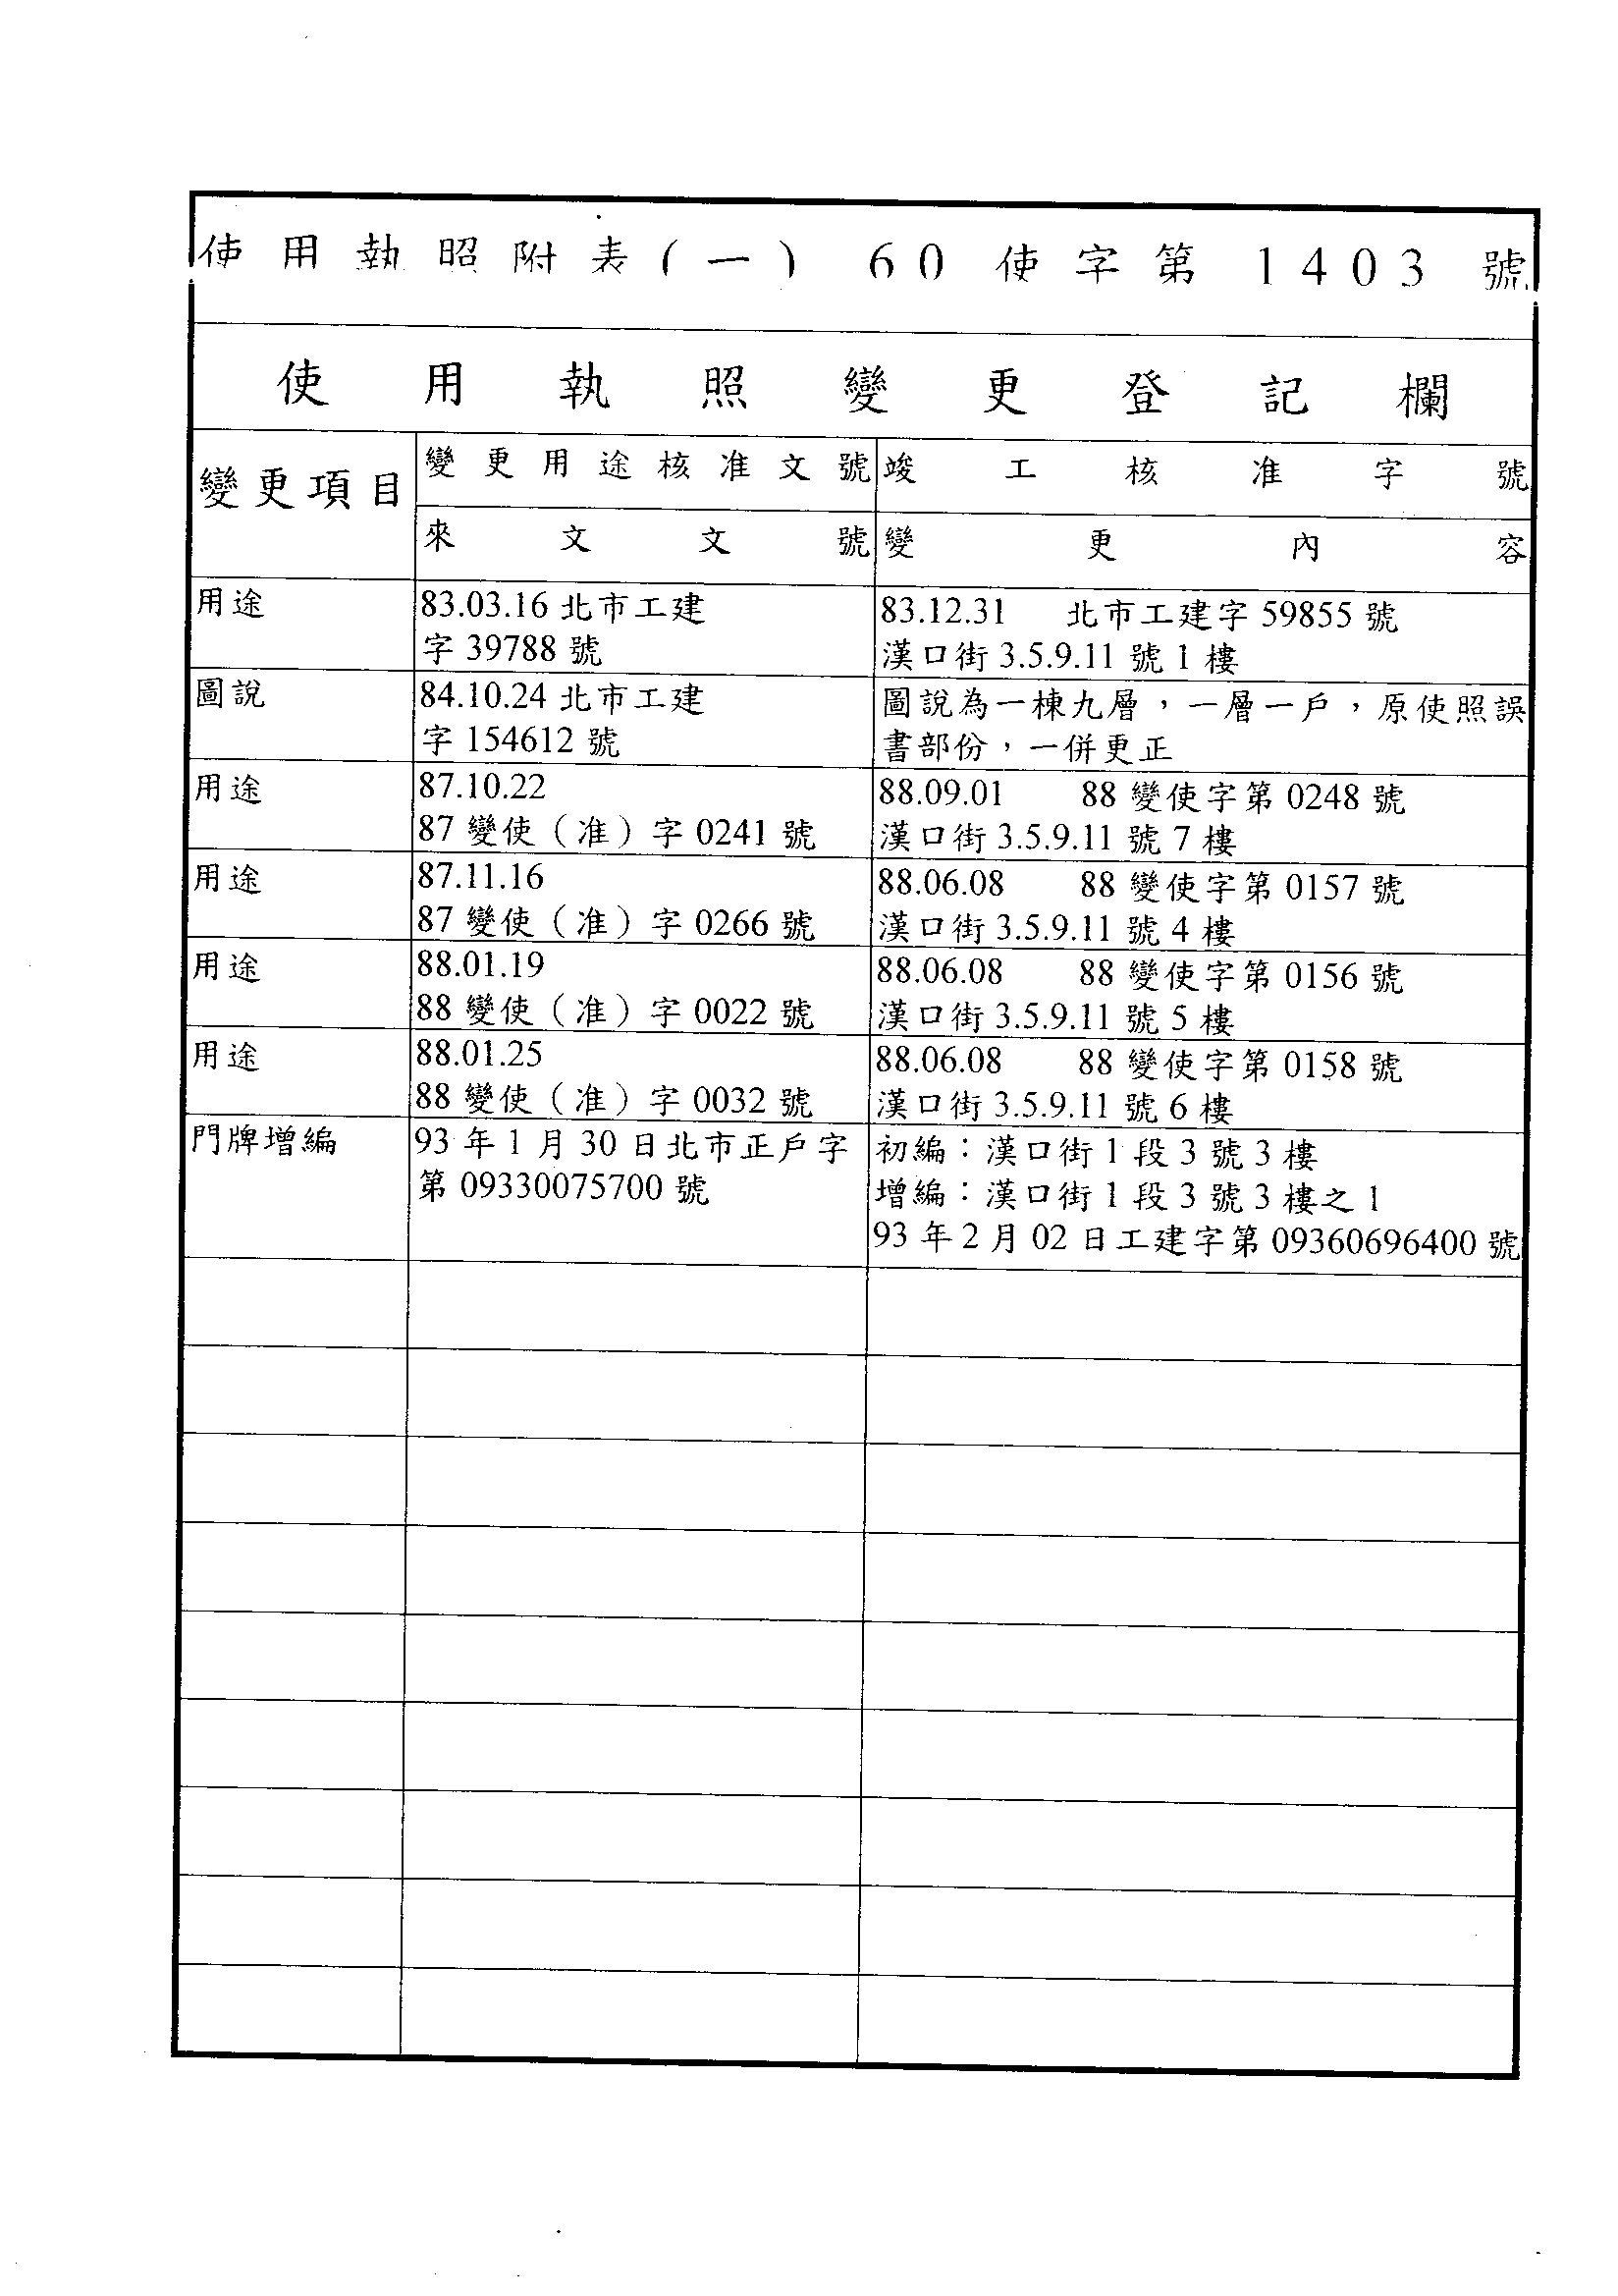 使用執照附表(一) 60使字第1403號
使用執照變更登記欄
變更項目
變更用途核准文號
竣工核准字號
來文文號
變更內容
用途
83.03.16 北市工建
字 39788 號
83.12.31 北市工建字 59855 號
漢口街 3.5.9.11 號 1 樓
圖說
84.10.24 北市工建
字 154612 號
圖說為一棟九層，一層一戶，原使照誤
書部份，一併更正
用途
87.10.22
87 變使（准）字 0241 號
88.09.01 88 變使字第 0248 號
漢口街 3.5.9.11 號 7 樓
用途
87.11.16
87 變使（准）字 0266 號
88.06.08 88 變使字第 0157 號
漢口街 3.5.9.11 號 4 樓
用途
88.01.19
88 變使（准）字 0022 號
88.06.08 88 變使字第 0156 號
漢口街 3.5.9.11 號 5 樓
用途
88.01.25
88 變使（准）字 0032 號
88.06.08 88 變使字第 0158 號
漢口街 3.5.9.11 號 6 樓
門牌增編
93 年 1 月 30 日北市正戶字
第 09330075700 號
初編：漢口街 1 段 3 號 3 樓
增編：漢口街 1 段 3 號 3 樓之 1
93 年 2 月 02 日工建字第 09360696400 號